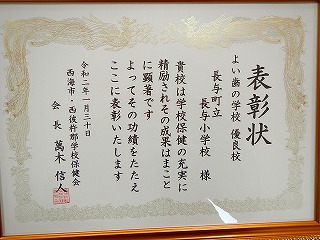 表彰状
よい歯の学校 優良校
長与町立
長与小学校 様
貴校は学校保健の充実に
精励されその成果はまこと
に顕著です
よってその功績をたたえ
ここに表彰いたします
令和二年一月三十日
西海市・西彼杵郡学校保健会
会長 萬木信人